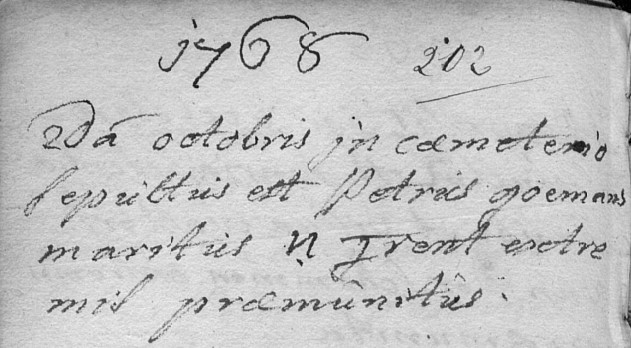 1768 202
2dâ octobris jn cœmeterio
sepultus est Petrus goemans
maritus N Trent extre
mis præmûnitûs.